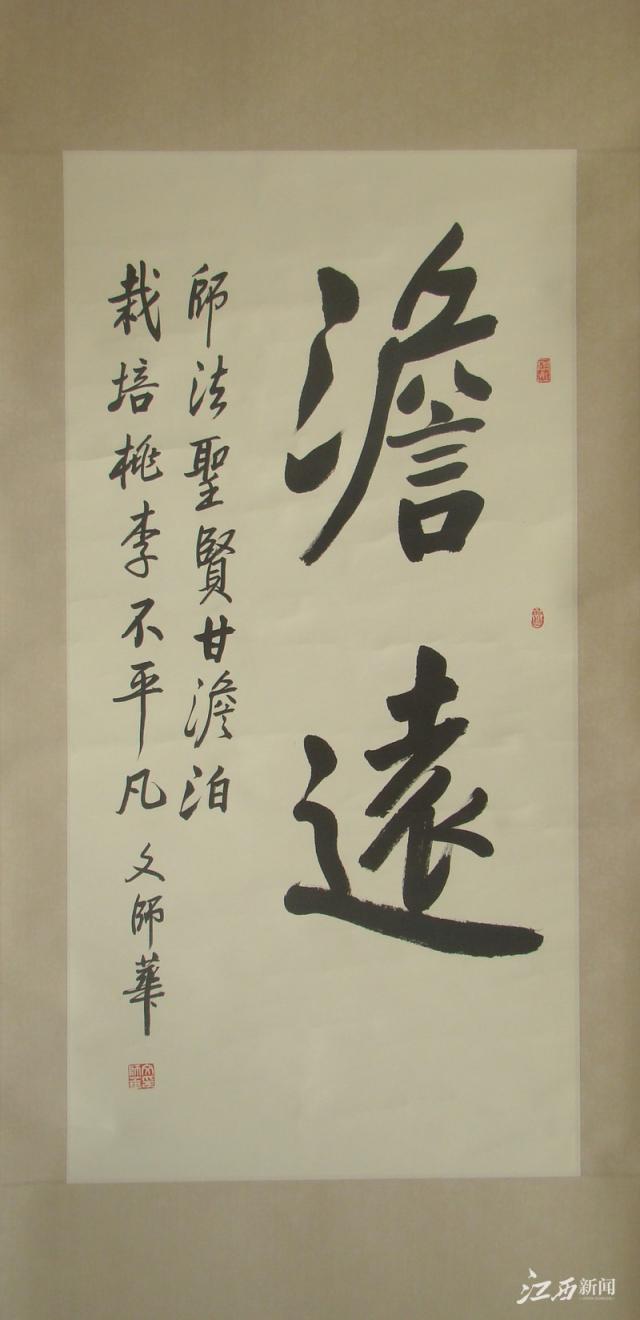 澹遠
師法聖賢甘澹泊
栽培桃李不平凡
文師華
江西新闻